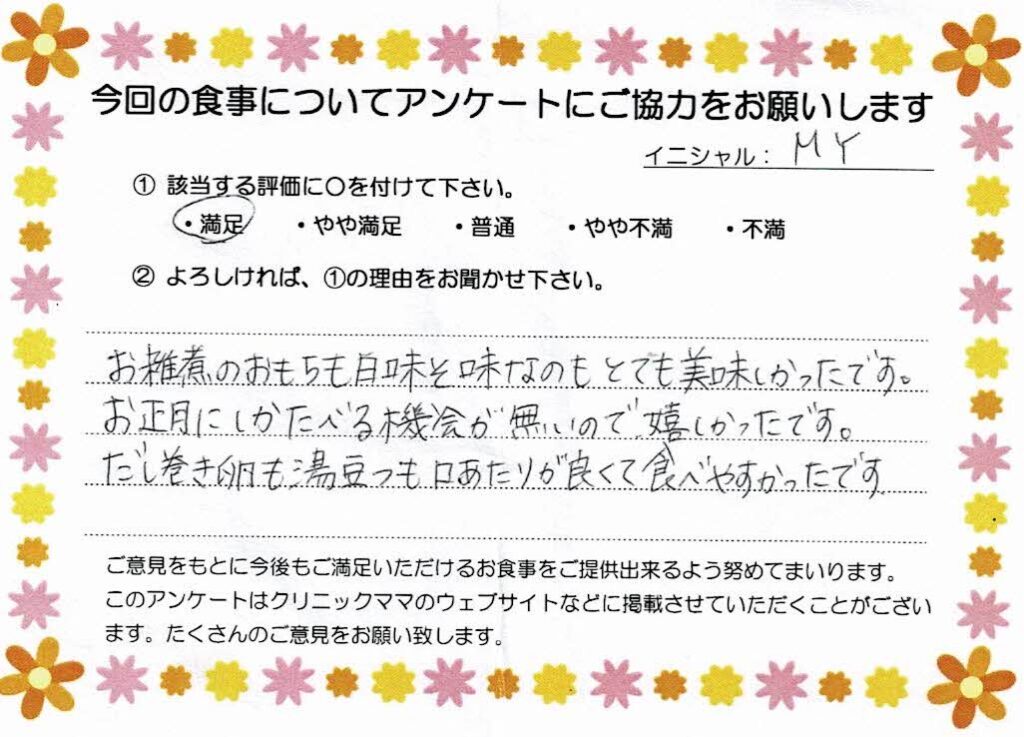 今回の食事についてアンケートにご協力をお願いします
イニシャル： MY
① 該当する評価に〇を付けて下さい。
・満足 ・やや満足 ・普通 ・やや不満 ・不満
② よろしければ、①の理由をお聞かせ下さい。
お雑煮のおもちも白味そ味なのもとても美味しかったです。
お正月にしかたべる機会が無いので嬉しかったです。
だし巻き卵も湯豆つも口あたりが良くて食べやすかったです
ご意見をもとに今後もご満足いただけるお食事をご提供出来るよう努めてまいります。
このアンケートはクリニックママのウェブサイトなどに掲載させていただくことがござい
ます。たくさんのご意見をお願い致します。